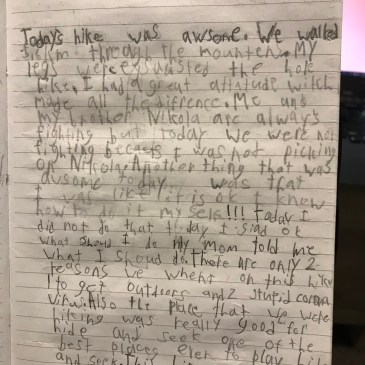 Todays hike was awsome. We walked
5.1km throall the mounten. My
legs were exsasted the hole
hike. I had a great attatude witch
made all the difrence. Me and
my brother Nikola are always
fighting but today we were not
fighting becaeus I was not picking
on Nikola. Another thing that was
awsome today was that
I was like it is ok I know
how to do it my self!!! Today I
did not do that today I siad ok
what should I do My mom told me
what I shoud do. There are only 2
reasons we whent on this hike
1 to get outdoors and 2 stupid corona
virus. Also the place that we were
hiking was really good for
hide and seek one of the
best places ever to play hide
and seek.